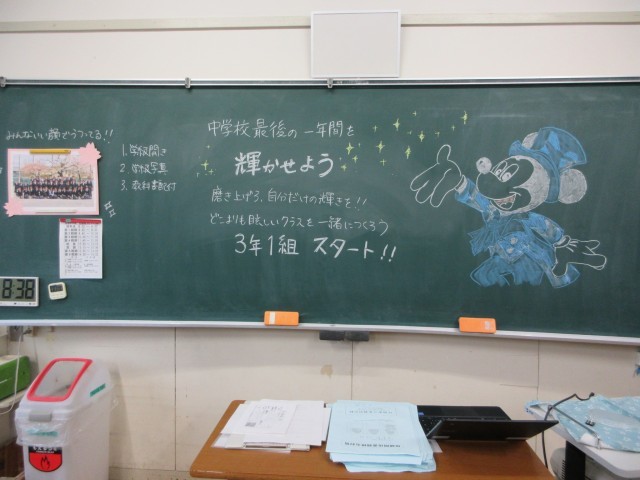 みんないい顔でうつってる!!
1. 学級開き
2. 学級写真
3. 教科書配付
8:38
中学校最後の一年間を
輝かせよう
磨き上げろ、自分だけの輝きを!!
どこよりも眩しいクラスを一緒につくろう
3年1組 スタート!!